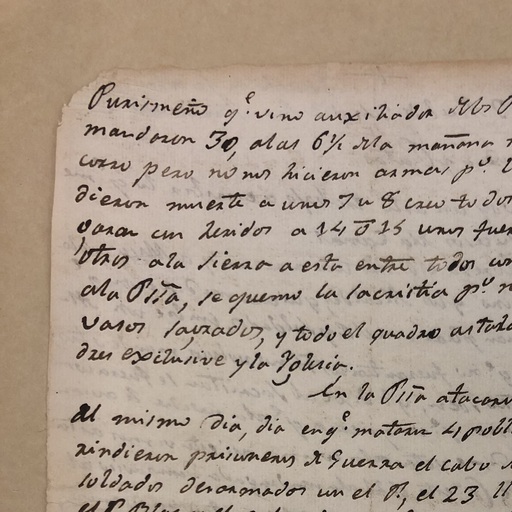 Purismeño q.e vino auxiliador de los
mandaron 30, a las 6½ de la mañana
corro pero no nos hicieron armas p.r
dieron muerte a unos 7 u 8 creo todos
varan con heridos a 14 o 15 unos fuer
otros a la sierra a esta entre todos
a la Pssa, se quemo la sacristia p.r
vasos sagrados, y todo el quadro
dres exclusive y la Yglesia.
En la Pssa atacaron
al mismo dia, dia en q.e mataron 4 pobl
rindieron prisioneros de Guerra el cabo
soldados desarmados con el P., el 23
el P. Blas